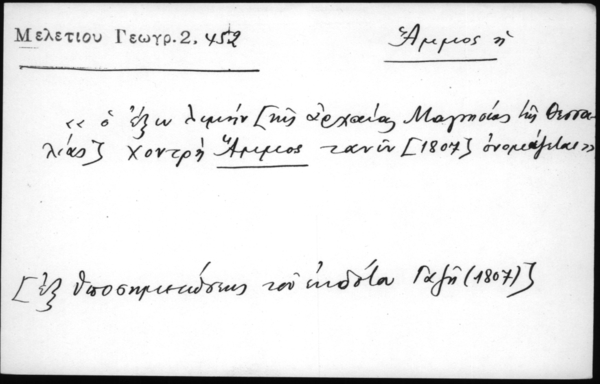 Μελετίου Γεωγρ. 2. 452
Ἄμμος ἡ
« ὁ ἔξω λιμὴν [τῆς ἀρχαίας Μαγνησίας τῆς Θεσσα-
λίας] Χοντρὴ Ἄμμος τανῦν [1807] ὀνομάζεται »
[ἐξ ὑποσημειώσεως τοῦ ἐκδότου Γαζῆ (1807)]